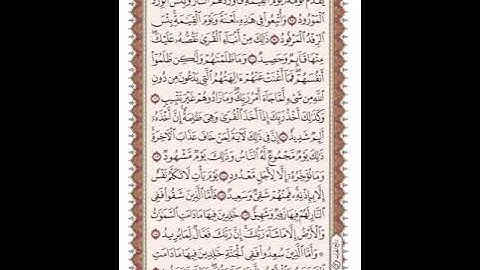 يَقْدُمُ قَوْمَهُۥ يَوْمَ ٱلْقِيَٰمَةِ فَأَوْرَدَهُمُ ٱلنَّارَ وَبِئْسَ ٱلْوِرْدُ
ٱلْمَوْرُودُ ۝ وَأُتْبِعُوا۟ فِى هَٰذِهِۦ لَعْنَةً وَيَوْمَ ٱلْقِيَٰمَةِ بِئْسَ
ٱلرِّفْدُ ٱلْمَرْفُودُ ۝ ذَٰلِكَ مِنْ أَنۢبَآءِ ٱلْقُرَىٰ نَقُصُّهُۥ عَلَيْكَ
مِنْهَا قَآئِمٌ وَحَصِيدٌ ۝ وَمَا ظَلَمْنَٰهُمْ وَلَٰكِن ظَلَمُوٓا۟
أَنفُسَهُمْ فَمَآ أَغْنَتْ عَنْهُمْ ءَالِهَتُهُمُ ٱلَّتِى يَدْعُونَ مِن دُونِ
ٱللَّهِ مِن شَىْءٍ لَّمَّا جَآءَ أَمْرُ رَبِّكَ وَمَا زَادُوهُمْ غَيْرَ تَتْبِيبٍ ۝
وَكَذَٰلِكَ أَخْذُ رَبِّكَ إِذَآ أَخَذَ ٱلْقُرَىٰ وَهِىَ ظَٰلِمَةٌ إِنَّ أَخْذَهُۥٓ
أَلِيمٌ شَدِيدٌ ۝ إِنَّ فِى ذَٰلِكَ لَءَايَةً لِّمَنْ خَافَ عَذَابَ ٱلْءَاخِرَةِ
ذَٰلِكَ يَوْمٌ مَّجْمُوعٌ لَّهُ ٱلنَّاسُ وَذَٰلِكَ يَوْمٌ مَّشْهُودٌ ۝
وَمَا نُؤَخِّرُهُۥٓ إِلَّا لِأَجَلٍ مَّعْدُودٍ ۝ يَوْمَ يَأْتِ لَا تَكَلَّمُ نَفْسٌ
إِلَّا بِإِذْنِهِۦ فَمِنْهُمْ شَقِىٌّ وَسَعِيدٌ ۝ فَأَمَّا ٱلَّذِينَ شَقُوا۟ فَفِى
ٱلنَّارِ لَهُمْ فِيهَا زَفِيرٌ وَشَهِيقٌ ۝ خَٰلِدِينَ فِيهَا مَا دَامَتِ ٱلسَّمَٰوَٰتُ
وَٱلْأَرْضُ إِلَّا مَا شَآءَ رَبُّكَ إِنَّ رَبَّكَ فَعَّالٌ لِّمَا يُرِيدُ ۝
۞ وَأَمَّا ٱلَّذِينَ سُعِدُوا۟ فَفِى ٱلْجَنَّةِ خَٰلِدِينَ فِيهَا مَا دَامَتِ